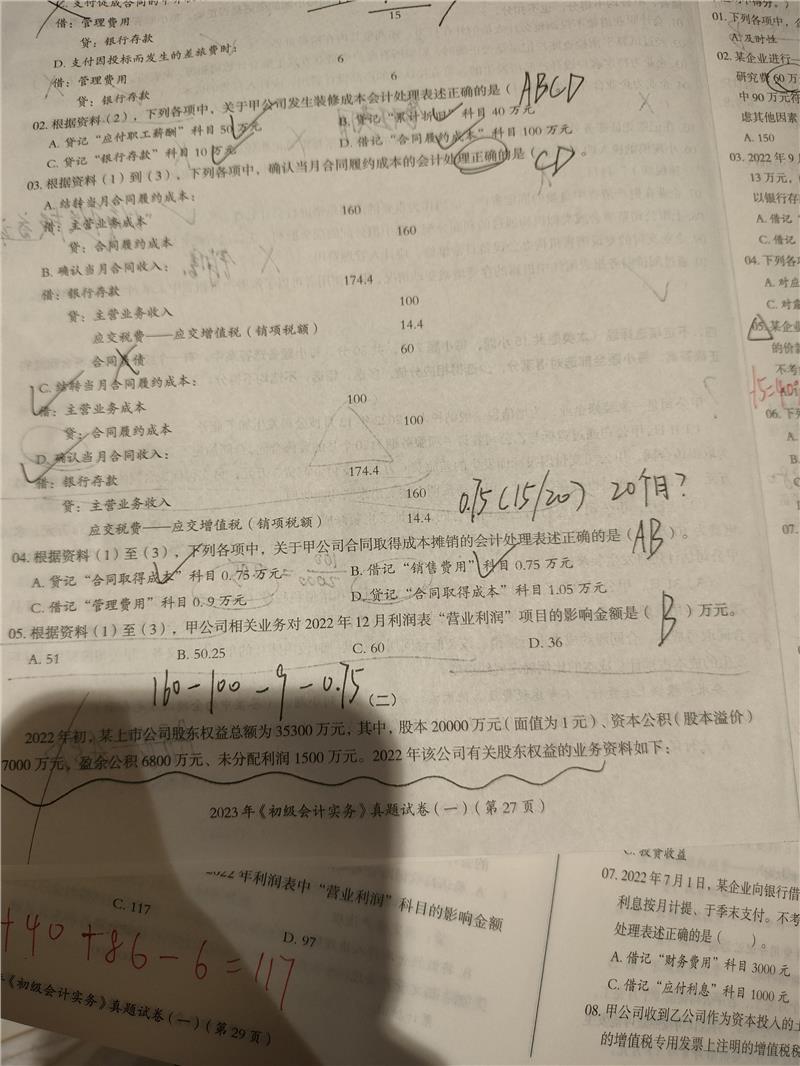 C. 支付促成合同的
15
借：管理费用
贷：银行存款
D. 支付因投标而发生的差旅费时：
6
借：管理费用
6
贷：银行存款
02. 根据资料（2），下列各项中，关于甲公司发生装修成本会计处理表述正确的是（ ABCD
A. 贷记“应付职工薪酬”科目 50 万元
B. 贷记“累计折旧”科目 40 万元
C. 贷记“银行存款”科目 10 万元
D. 借记“合同履约成本”科目 100 万元
03. 根据资料（1）到（3），下列各项中，确认当月合同履约成本的会计处理正确的是（ CD ）。
A. 结转当月合同履约成本：
借：主营业务成本 160
贷：合同履约成本 160
B. 确认当月合同收入：
借：银行存款 174.4
贷：主营业务收入 100
应交税费——应交增值税（销项税额） 14.4
合同负债 60
C. 结转当月合同履约成本：
借：主营业务成本 100
贷：合同履约成本 100
D. 确认当月合同收入：
借：银行存款 174.4
贷：主营业务收入 160
应交税费——应交增值税（销项税额） 14.4
0.75（15/20） 20个月？
04. 根据资料（1）至（3），下列各项中，关于甲公司合同取得成本摊销的会计处理表述正确的是（ AB ）。
A. 贷记“合同取得成本”科目 0.75 万元
B. 借记“销售费用”科目 0.75 万元
C. 借记“管理费用”科目 0.9 万元
D. 贷记“合同取得成本”科目 1.05 万元
05. 根据资料（1）至（3），甲公司相关业务对 2022 年 12 月利润表“营业利润”项目的影响金额是（ B ）万元。
A. 51 B. 50.25 C. 60 D. 36
160-100-9-0.75
（二）
2022 年初，某上市公司股东权益总额为 35300 万元，其中，股本 20000 万元（面值为 1 元）、资本公积（股本溢价）
7000 万元，盈余公积 6800 万元、未分配利润 1500 万元。2022 年该公司有关股东权益的业务资料如下：
2023 年《初级会计实务》真题试卷（一）（第 27 页）
01. 下列各项中，
A. 及时性
02. 某企业进行
研究费 60 万
中 90 万元符
虑其他因素
A. 150
03. 2022 年 9
13 万元，
以银行存
A. 借记“
C. 借记“
04. 下列各
A. 对应
C. 对
05. 某企业
的价款
不考
06. 下列
A.
B.
C
07.
2022 年利润表中“营业利润”科目的影响金额
C. 117
D. 97
+40+86-6=117
《初级会计实务》真题试卷（一）（第 29 页）
C. 投资收益
07. 2022 年 7 月 1 日，某企业向银行借
利息按月计提、于季末支付。不考
处理表述正确的是（ ）。
A. 借记“财务费用”科目 3000 元
C. 借记“应付利息”科目 1000 元
08. 甲公司收到乙公司作为资本投入的
的增值税专用发票上注明的增值税税